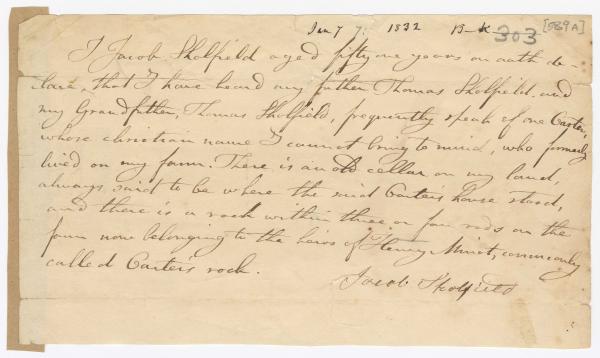 Jany 7. 1832 B-K 303 [589A]
I Jacob Skolfield aged fifty one years on oath de-
clare, that I have heard my father Thomas Skolfield and
my Grandfather, Thomas Skolfield, frequently speak of one Carter,
whose christian name I cannot bring to mind, who formerly
lived on my farm. There is an old cellar on my land,
always said to be where the said Carter's house stood,
and there is a rock within three or four rods on the
farm now belonging to the heirs of Henry Minot, commonly
called Carter's rock.
Jacob Skolfield